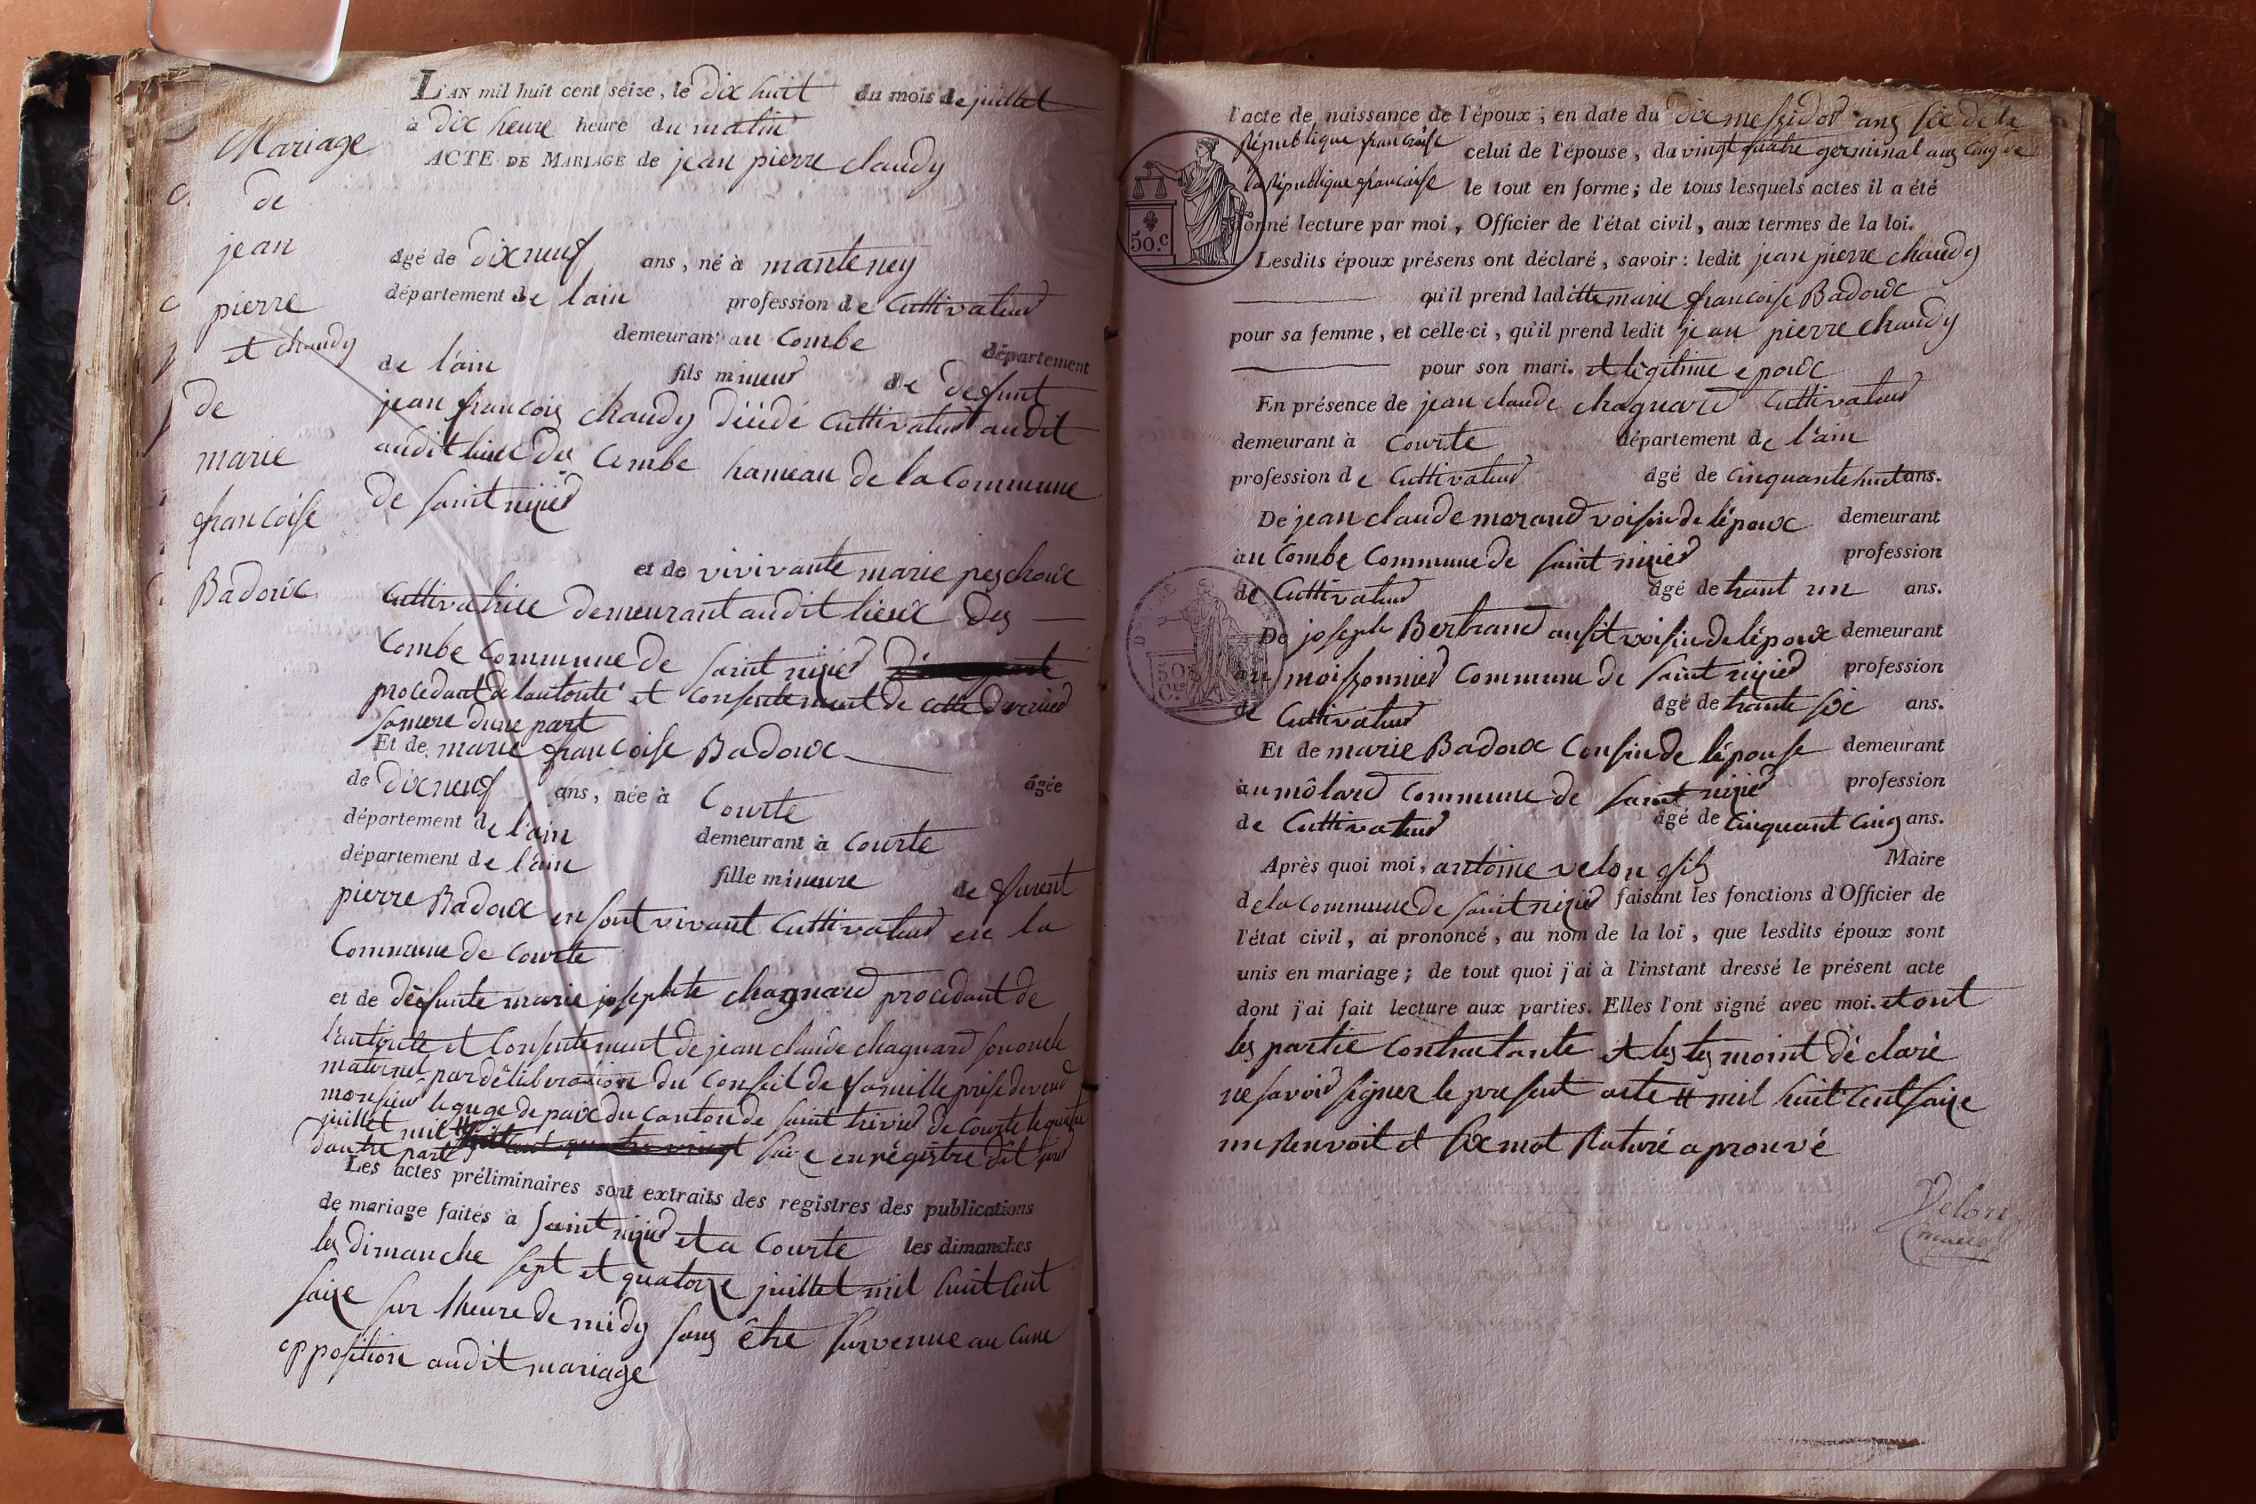 Mariage
de
jean
pierre
et chaudy
de
marie
francoise
Badoux
L'AN mil huit cent seize, le dix huit du mois de juillet
à dix heure heure du matin
ACTE DE MARIAGE de jean pierre claudy
âgé de dix neuf ans, né à manteney
département de l'ain profession de Cultivateur
demeurant au Combe département
de l'ain fils mineur de deffunt
jean francois chaudy décidé Cultivateur audit
audit lieux des Combe hameau de la Commune
de saint nizier
et de vivivante marie peschoux
Cultivatrice demeurant audit lieux des
Combe Commune de saint nizier
procedant de lautorité et Consentement de cette dernier
sa mere dune part
Et de marie francoise Badoux âgée
de dix neuf ans, née à Courte
département de l'ain demeurant à Courte
département de l'ain fille mineure de furent
pierre Badoux en sont vivant Cultivateur en la
Commune de Courte
et de défunte marie josephte chagnard procedant de
l'autorité et Consentement de jean claude chagnard son oncle
maternel par déliberation du Conseil de famille prise devend
monsieur le guge de paix du Canton de saint trivier de Courte le quinze
juillet mil saize enrégistre dit jour
dautre part
Les actes préliminaires sont extraits des registres des publications
de mariage faites à saint nizier et a Courte les dimanches
les dimanche sept et quatorze juillet mil huit Cent
saize sur lheure de midy sans être survenue au Cune
opposition audit mariage
l'acte de naissance de l'époux, en date du dix messidor ans six de la
République francoise celui de l'épouse, du vingt quatre germinal ans Cinq de
la République francoise le tout en forme; de tous lesquels actes il a été
donné lecture par moi, Officier de l'état civil, aux termes de la loi.
50.c
Lesdits époux présens ont déclaré, savoir: ledit jean pierre chaudy
qu'il prend laditte marie francoise Badoux
pour sa femme, et celle-ci, qu'il prend ledit jean pierre chaudy
pour son mari. et légitime epoux
En présence de jean claude chagnard Cultivateur
demeurant à Courte département de l'ain
profession de Cultivateur âgé de cinquante huit ans.
De jean claude morand voisin de lépoux demeurant
au Combe Commune de saint nizier profession
de Cultivateur âgé de trant un ans.
De joseph Bertrand ausit voisin de lépoux demeurant
au moissonnier Commune de saint nizier profession
de Cultivateur âgé de trante six ans.
Et de marie Badoux Cousin de lépouse demeurant
au môlard Commune de saint nizier profession
de Cultivateur âgé de Cinquant Cinq ans.
Après quoi moi, antoine velon fils Maire
de la Commune de saint nizier faisant les fonctions d'Officier de
l'état civil, ai prononcé, au nom de la loi, que lesdits époux sont
unis en mariage; de tout quoi j'ai à l'instant dressé le présent acte
dont j'ai fait lecture aux parties. Elles l'ont signé avec moi. et ont
les partie Contractante et les tes moint dé claré
ne savoir signer le present acte mil huit Cent saize
un renvoit et six mot raturé a prouvé
Velon
maire